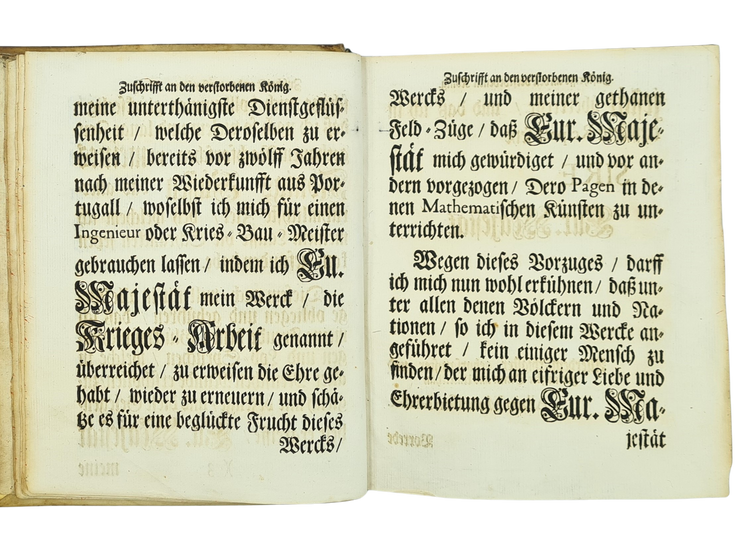 Zuschrifft an den verstorbenen König.
meine unterthänigste Dienstgeflüs-
senheit / welche Deroselben zu er-
weisen / bereits vor zwölff Jahren
nach meiner Wiederkunfft aus Por-
tugall / woselbst ich mich für einen
Ingenieur oder Kries-Bau-Meister
gebrauchen lassen / indem ich Eu.
Majestät mein Werck / die
Krieges-Arbeit genannt /
überreichet / zu erweisen die Ehre ge-
habt / wieder zu erneuern / und schä-
tze es für eine beglückte Frucht dieses
Wercks /
Zuschrifft an den verstorbenen König.
Wercks / und meiner gethanen
Feld-Züge / daß Eur. Maje-
stät mich gewürdiget / und vor an-
dern vorgezogen / Dero Pagen in de-
nen Mathematischen Künsten zu un-
terrichten.
Wegen dieses Vorzuges / darff
ich mich nun wohl erkühnen / daß un-
ter allen denen Völckern und Na-
tionen / so ich in diesem Wercke an-
geführet / kein einiger Mensch zu
finden / der mich an eifriger Liebe und
Ehrerbietung gegen Eur. Ma-
jestät